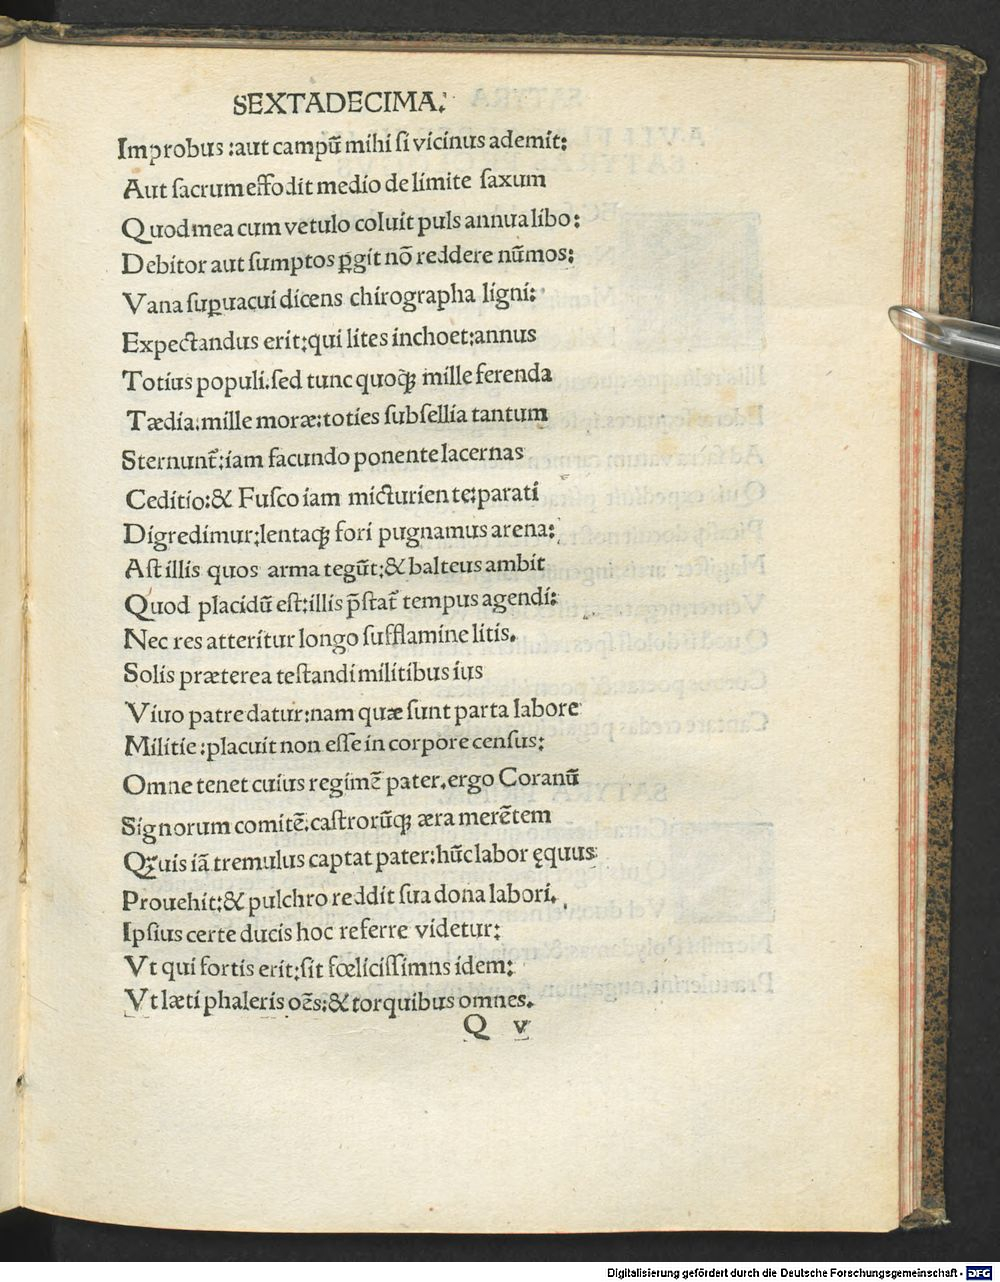 SEXTADECIMA.
Improbus:aut campū mihi ſi vicinus ademit:
Aut ſacrum effodit medio de limite ſaxum
Quod mea cum vetulo coluit puls annua libo:
Debitor aut ſumptos ꝑgit nō reddere nūmos:
Vana ſuꝑuacui dicens chirographa ligni:
Expectandus erit:qui lites inchoet:annus
Totius populi.ſed tunc quoꝗ mille ferenda
Tædia:mille moræ:toties ſubſellia tantum
Sternunt̃:iam facundo ponente lacernas
Ceditio:& Fuſco iam micturiente:parati
Digredimur:lentaꝗ fori pugnamus arena:
Aſt illis quos arma tegūt:& balteus ambit
Quod placidū eſt:illis p̄ſtat̃ tempus agendi:
Nec res atteritur longo ſufflamine litis.
Solis præterea teſtandi militibus ius
Viuo patre datur:nam quæ ſunt parta labore
Militie:placuit non eſſe in corpore cenſus:
Omne tenet cuius regimē pater.ergo Coranū
Signorum comitē:caſtrorūꝗ æra merētem
Qꝫuis iā tremulus captat pater:hūc labor ęquus
Prouehit:& pulchro reddit ſua dona labori.
Ipſius certe ducis hoc referre videtur:
Vt qui fortis erit:ſit fœliciſſimns idem:
Vt læti phaleris oēs:& torquibus omnes.
Q v
Digitalisierung gefördert durch die Deutsche Forschungsgemeinschaft - DFG